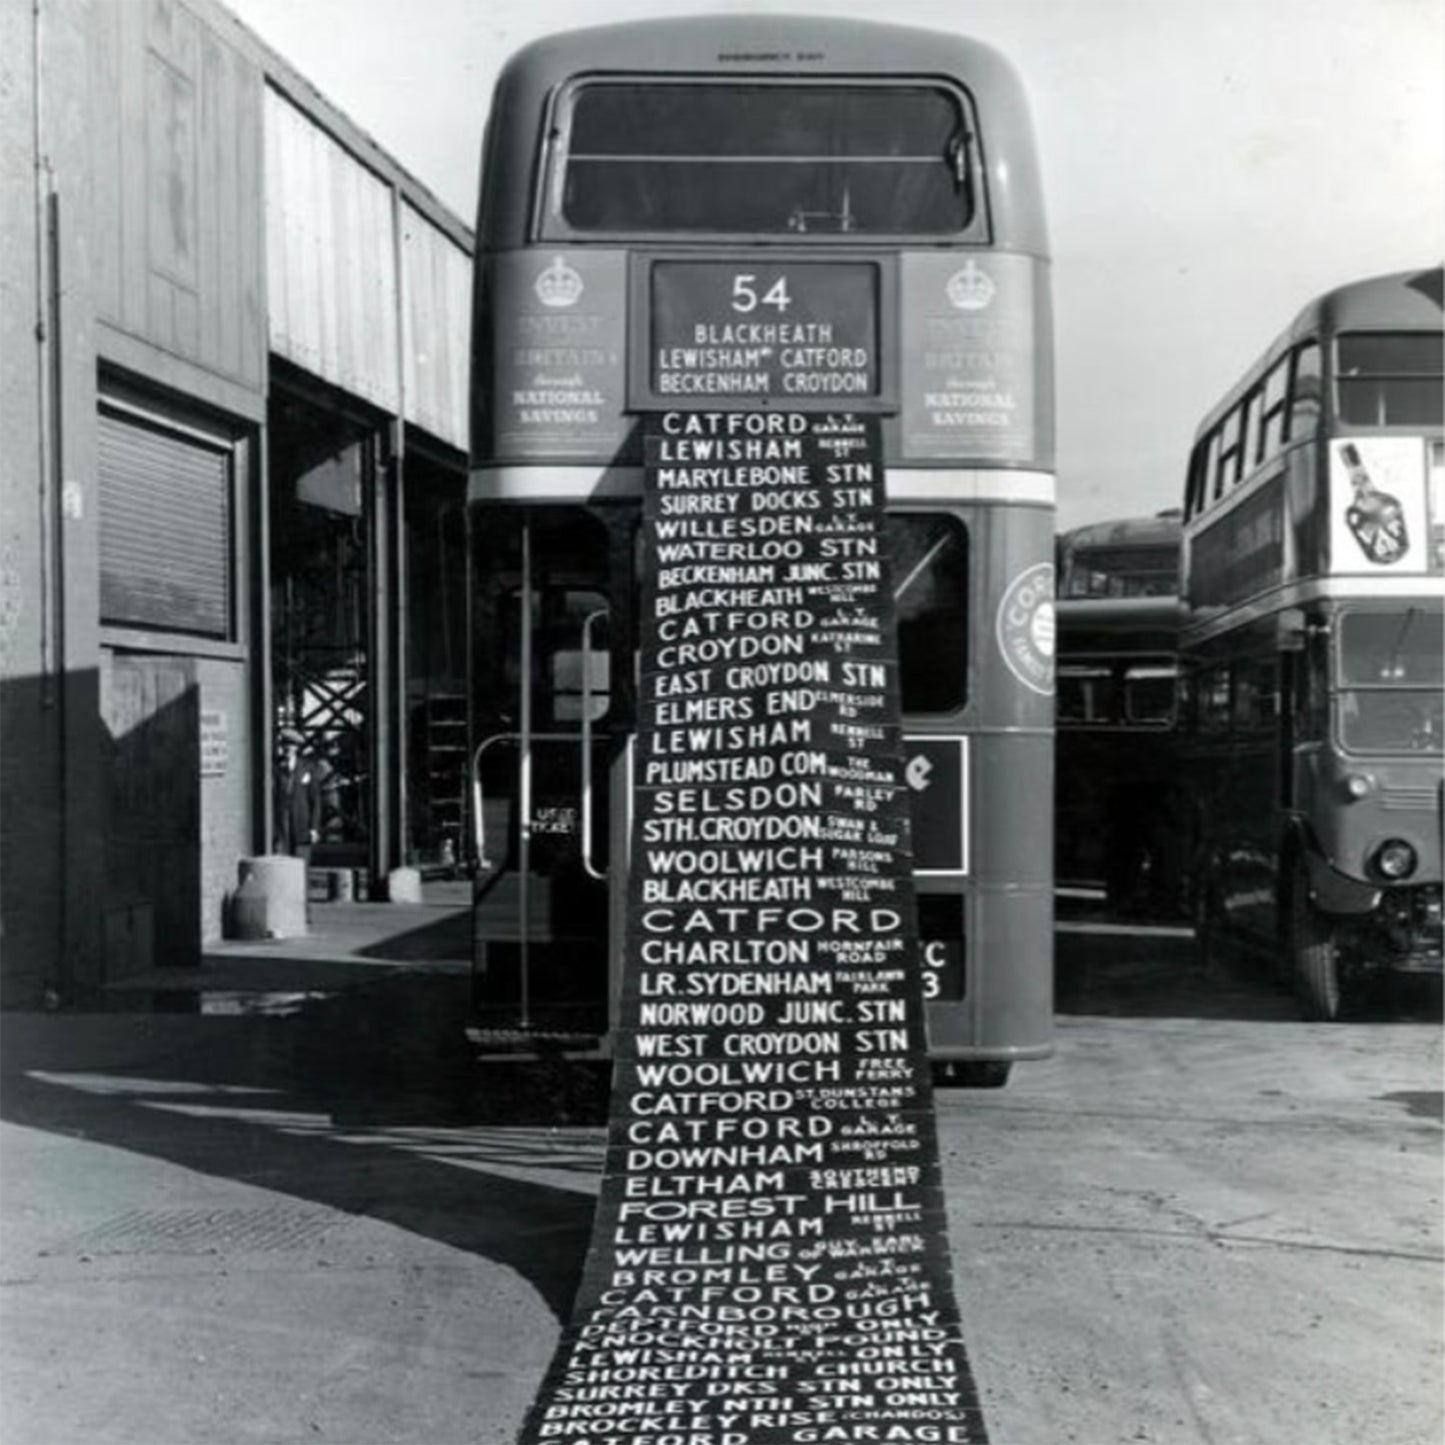 EMERGENCY EXIT
54
BLACKHEATH
LEWISHAM CATFORD
BECKENHAM CROYDON
INVEST
BRITAIN
through
NATIONAL
SAVINGS
INVEST
BRITAIN
through
NATIONAL
SAVINGS
CATFORD L.T. GARAGE
LEWISHAM RENNELL ST
MARYLEBONE STN
SURREY DOCKS STN
WILLESDEN L.T. GARAGE
WATERLOO STN
BECKENHAM JUNC. STN
BLACKHEATH WESTCOMBE HILL
CATFORD L.T. GARAGE
CROYDON KATHARINE ST
EAST CROYDON STN
ELMERS END ELMERSIDE RD
LEWISHAM RENNELL ST
PLUMSTEAD COM. THE WOODMAN
SELSDON FARLEY RD
STH. CROYDON SWAN & SUGAR LOAF
WOOLWICH PARSONS HILL
BLACKHEATH WESTCOMBE HILL
CATFORD
CHARLTON HORNFAIR ROAD
LR. SYDENHAM FAIRLAWN PARK
NORWOOD JUNC. STN
WEST CROYDON STN
WOOLWICH FREE FERRY
CATFORD ST DUNSTANS COLLEGE
CATFORD L.T. GARAGE
DOWNHAM SHROFFOLD RD
ELTHAM SOUTHEND CRESCENT
FOREST HILL
LEWISHAM RENNELL ST
WELLING GUY EARL OF WARWICK
BROMLEY L.T. GARAGE
CATFORD L.T. GARAGE
FARNBOROUGH
DEPTFORD ONLY
KNOCKHOLT POUND
LEWISHAM ONLY
SHOREDITCH CHURCH
SURREY DKS STN ONLY
BROMLEY NTH STN ONLY
BROCKLEY RISE (CHANDOS)
CATFORD GARAGE
COR
e
C
3
VAT